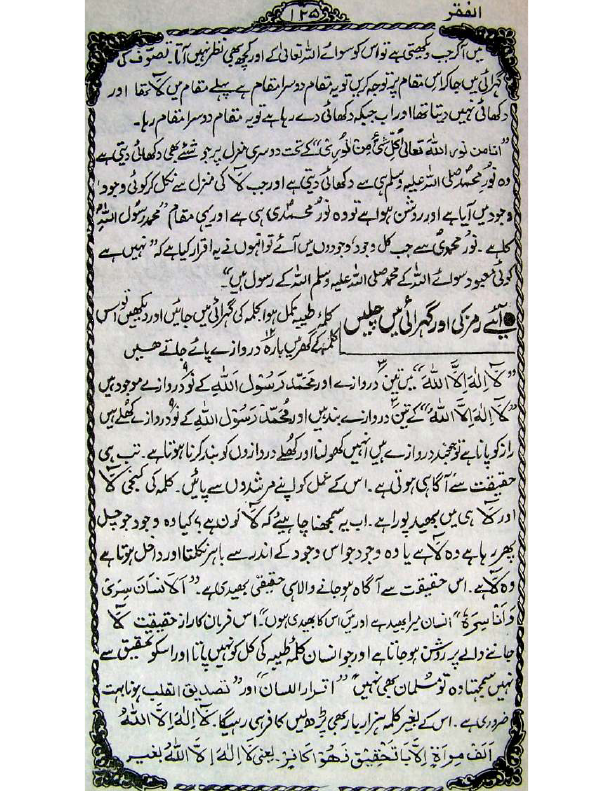 الفقر
۱۲۵
میں آکر جب دیکھیتی ہے تو اس کو سوائے اللہ تعالیٰ کے اور کچھ بھی نظر نہیں آتا۔ تصوّف کی
گہرائی میں جاکر اس مقام پہ توجہ کریں تو یہ مقام دوسرا مقام ہے پہلے مقام میں لَآ تھا اور
دکھائی نہیں دیتا تھا اور اب جبکہ دکھائی دے رہا ہے تو یہ مقام دوسرا مقام رہا۔
"انا من نور اللہ تعالیٰ کُل شیءٍ مِن نُورِی" کے تحت دوسری منزل پر جو شئے بھی دکھائی دیتی ہے
وہ نورِ محمدؐ صلی اللہ علیہ وسلم ہی سے دکھائی دیتی ہے اور جب لَآ کی منزل سے نکل کر کوئی وجود،
وجود میں آیا ہے اور روشن ہوا ہے تو وہ نورِ محمدؐی ہی ہے اور یہی مقام "محمد رسُول اللہ"
کا ہے۔ نورِ محمدیؐ سے جب کل وجود، وجودوں میں آئے تو انہوں نے یہ اقرار کیا ہے کہ "نہیں ہے
کوئی معبود سوائے اللہ کے محمد صلی اللہ علیہ وسلم اللہ کے رسول ہیں"۔
● آیئے رمز کی اور گہرائی میں چلیں
کلمۂ طیبہ مکمل ہوا جملہ کی گہرائی میں جائیں اور دیکھیں تو اس
کلمہ کے گھر میں بارہ ۱۲ دروازے پائے جاتے ھیں
"لَآ اِلٰہَ اِلَّا اللہُ" میں تین ۳ دروازے اور مُحَمَّد رَسُوْل اللہِ کے نو ۹ دروازے موجود ہیں
"لَآ اِلٰہَ اِلَّا اللہُ" کے تین ۳ دروازے بند ہیں اور مُحمَّد رَسُوْل اللہ کے نو ۹ دروازے کھلے ہیں
راز کو پانا ہے تو جو بند دروازے ہیں انہیں کھولنا اور کھُلے دروازوں کو بند کرنا ہوتا ہے۔ تب ہی
حقیقت سے آگاہی ہوتی ہے۔ اس کے عمل کو اپنے مرشدوں سے پائیں۔ کلمہ کی کنجی لَآ
اور لَآ ہی میں بھید پورا ہے۔ اب یہ سمجھنا چاہیئے کہ لَآ کون ہے؟ کیا وہ وجود جو چل
پھر رہا ہے وہ لَآ ہے یا وہ وجود جو اس وجود کے اندر سے باہر نکلتا اور داخل ہوتا ہے
وہ لَآ ہے۔ اس حقیقت سے آگاہ ہو جانے والا ہی حقیقی بھیدی ہے۔ "اَلْاِنْسَانُ سِرِّیْ
وَاَنَا سِرُّہٗ" انسان میرا بھید ہے اور میں اس کا بھیدی ہوں"۔ اس فرمان کا راز حقیقت لَآ
جاننے والے پر روشن ہو جاتا ہے اور جو انسان کلمۂ طیبہ کی کل کو نہیں پاتا اور اسکو تحقیق سے
نہیں سمجھتا وہ تو مسلمان بھی نہیں "اقرار اللسان" اور "تصدیق القلب ہونا بہت
ضروری ہے۔ اس کے بغیر کلمہ ہزار بار بھی پڑھیں کافر ہی رہیگا۔ لَآ اِلٰہَ اِلَّا اللہُ
اَلْف مِرآۃٍ اِلَّا بِا تحقیق فَھُوَ کافِرٌ۔ یعنی لَا اِلٰہَ اِلَّا اللہُ بغیر